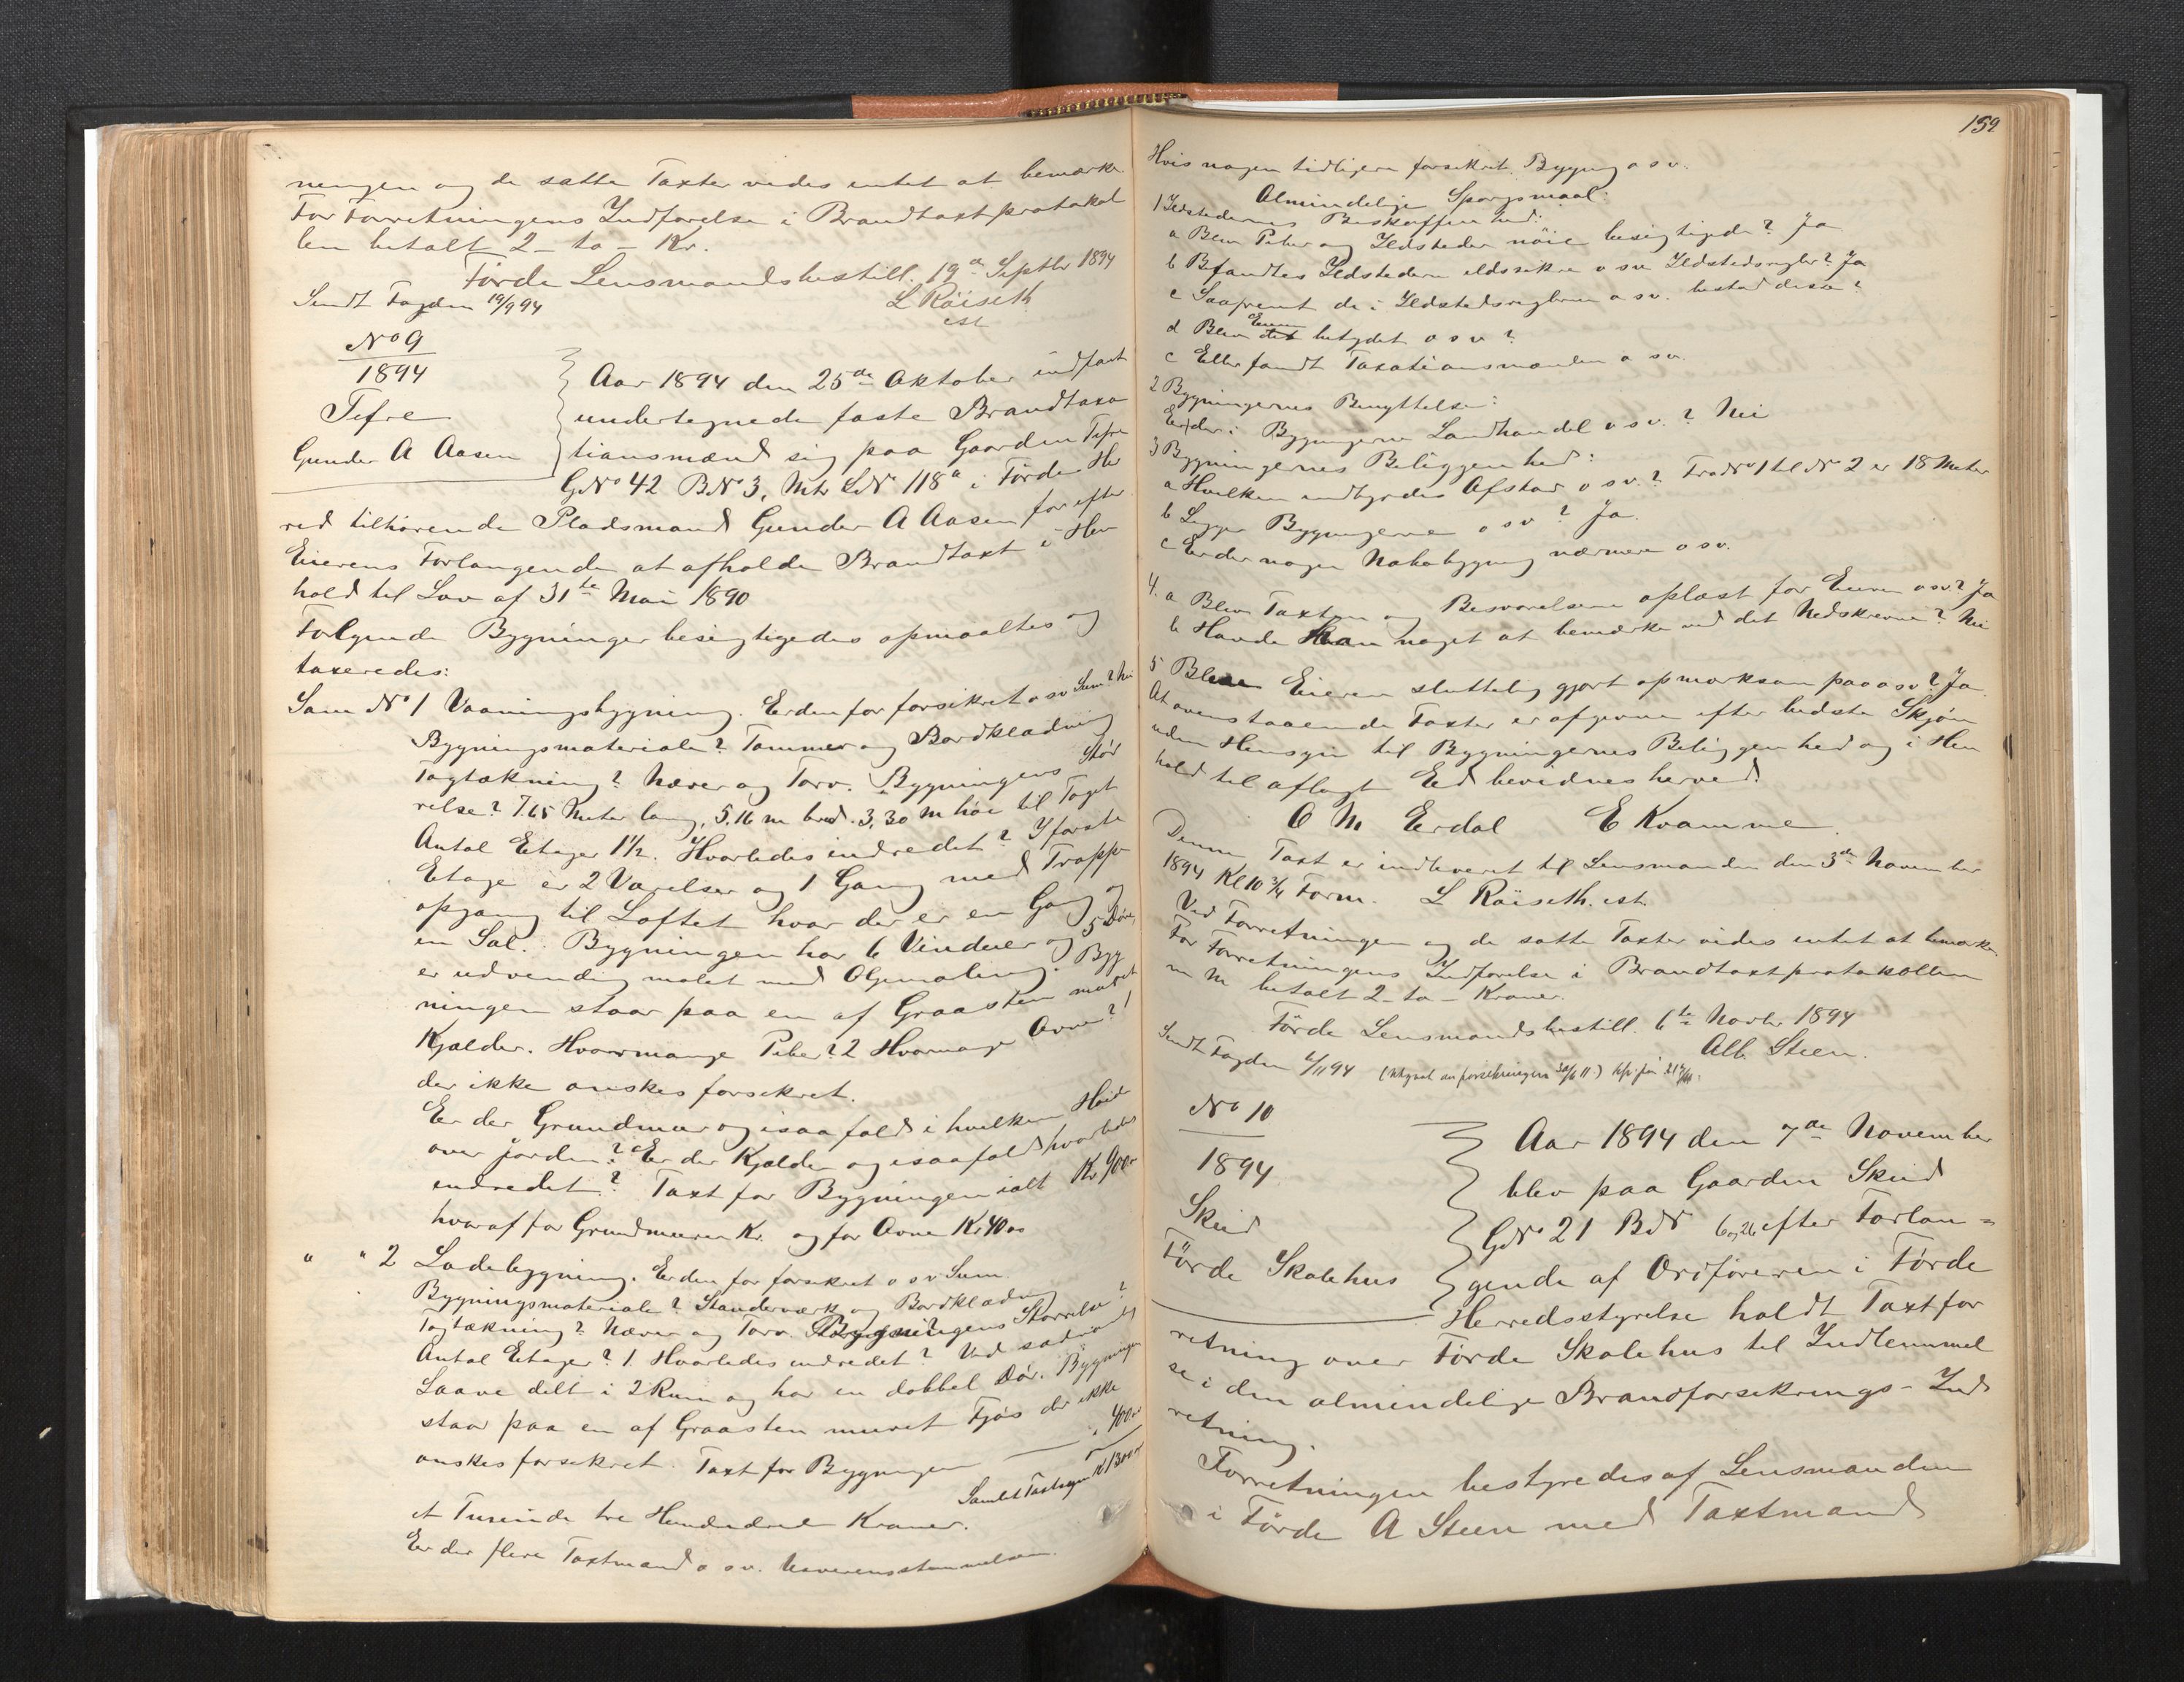 ningen og de satte Taxter vides intet at bemærke
For Forretningens Indførelse i Brandtaxtprotokol
len betalt 2 - to - Kr.
Förde Lensmandsbestill. 19de Septbr 1894
L Röiseth
est
Sendt Fogden 19/9 94
No 9
1894
Tefre
Gunder A Aasen
Aar 1894 den 25de Oktober indfant
undertegnede faste Brandtaxa
tiansmænd sig paa Gaarden Tefre
GNo 42 BNo 3, Mtr LNo 118a i Förde Her
red tilhörende Pladsmand Gunder A Aasen for efter
Eierens Forlangende at afholde Brandtaxt i Hen
hold til Lov af 31te Mai 1890
Følgende Bygninger besigtigedes opmaaltes og
taxeredes:
Som No 1 Vaaningsbygning. Er den før forsikret osv Sum? Nei
Bygningsmateriale? Tømmer og Bordklædning
Tagtækning? Næver og Torv. Bygningens Stör
relse? 7.65 Meter lang, 5.16 m bred. 3,30 m høi til Taget
Antal Etager 1½. Hvorledes indredet? I første
Etage er 2 Værelser og 1 Gang med Trappe
opgang til Loftet hvor der er en Gang og
en Sal. Bygningen har 6 Vinduer og 5 Döre,
er udvendig malet med Oljemaling. Byg
ningen staar paa en af Graasten muret
Kjælder. Hvormange Piber? 2 Hvormange Ovne? 1
der ikke ønskes forsekret.
Er der Grundmur og isaafald i hvilken Höide
over jorden? Er der Kjælder og isaafald hvorledes
indredet? Taxt for Bygningen ialt Kr 900.00
hvoraf for Grundmuren Kr. og for Ovne Kr 40.00
" " 2 Ladebygning. Er den før forsekret osv Sum
Bygningsmateriale? Standerværk og Bordklædning
Tagtækning? Næver og Torv. Bygningens Størrelse?
Antal Etager? 1. Hvorledes indredet? Ved
Laave delt i 2 Rum og har en dobbel Dör. Bygningen
staar paa en af Graasten muret Fjös der ikke
ønskes forsekret. Taxt for Bygningen " 400.00
Samlet Taxtsum Kr 1300.00
et Tusinde tre Hundredrede Kroner.
Er der flere Taxtmænd o sv. Uoverensstemmelsen.
159
Hvis nogen tidligere forsekret Bygning o s v.
Almindelige Spørgsmaal:
1 Ildstedernes Beskaffenhed:
a Blev Piber og Ildsteder nöie besigtigede? Ja
b Befandtes Ildstederne eldssikre o sv Ildstedsregler? Ja
c Saafremt de i Ildstedsreglerne o sv. bestod disse?
d Blev Eieren det betydet o s v?
e Eller fandt Taxationsmanden o sv.
2 Bygningernes Benyttelse:
Er der i Bygningerne Landhandel o s v.? Nei
3 Bygningernes Beliggenhed:
a Hvilken indbyrdes Afstand o s v.? Fra No 1 til No 2 er 18 Meter
b Ligger Bygningerne o s v? Ja.
c Er der nogen Nabobygning nærmere o sv.
4. a Blev Taxten og Besvarelserne oplæst for Eieren o sv? Ja
b Havde Han noget at bemærke ved det Nedskrevne? Nei
5 Blev Eieren sluttelig gjort opmærksom paa o sv? Ja.
At ovenstaaende Taxter er afgivne efter bedste Skjön
uden Hensyn til Bygningernes Beliggenhed og i Hen
hold til aflagt Ed bevidnes herved.
O M Erdal E Kvamme
Denne Taxt er indleveret til Lensmanden den 3de November
1894 Kl 10¾ Form. L Röiseth. est.
Ved Forretningen og de satte Taxter vides intet at bemærke
For Forretningens Indførelse i Brandtaxtprotokollen
m m betalt 2 - to - Kroner.
Förde Lensmandsbestill. 6te Novbr 1894
Alb. Steen.
Sendt Fogden 6/11 94
No 10
1894
Skeid
Förde Skolehus
Aar 1894 den 7de November
blev paa Gaarden Skeid
GNo 21 BNo 6 og 26 efter Forlan=
gende af Ordføreren i Förde
Herredsstyrelse holdt Taxtfor
retning over Förde Skolehus til Indlemmel
se i den almindelige Brandforsekrings- Ind
retning.
Forretningen bestyredes af Lensmanden
i Förde A Steen med Taxtmænd